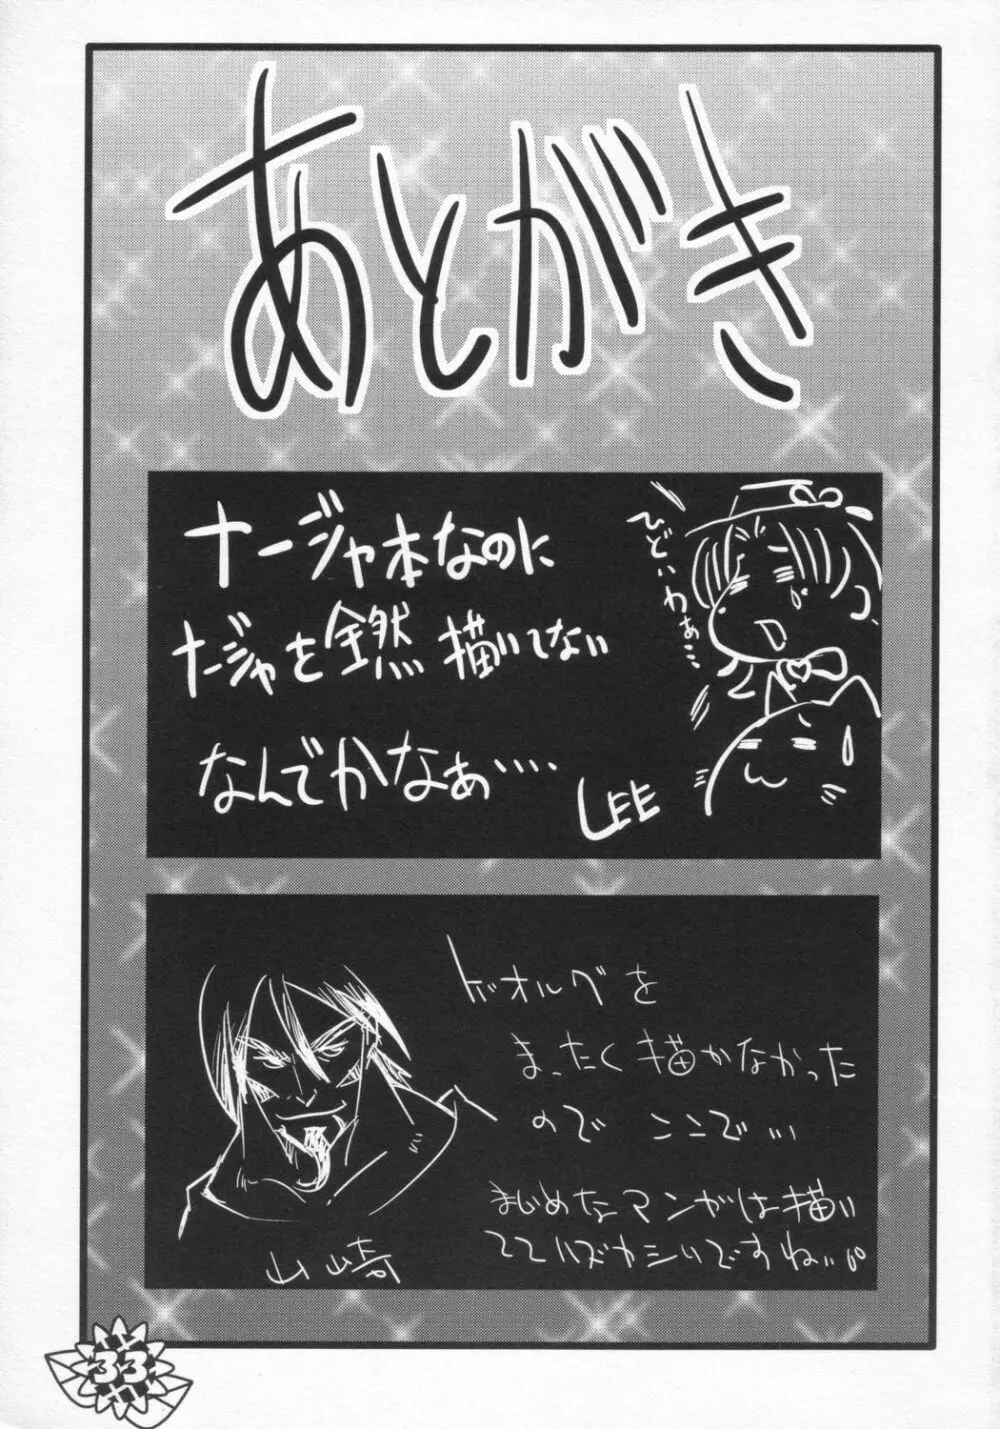 あとがき
ナージャ本なのに
ナージャを全然描いてない
なんでかなぁ‥‥
LEE
ひどいわぁ…
ドオルベを
まったく描かなかった
ので ここで…
まじめなマンガは描い
ててハズカシいですねぃ。
山崎
33